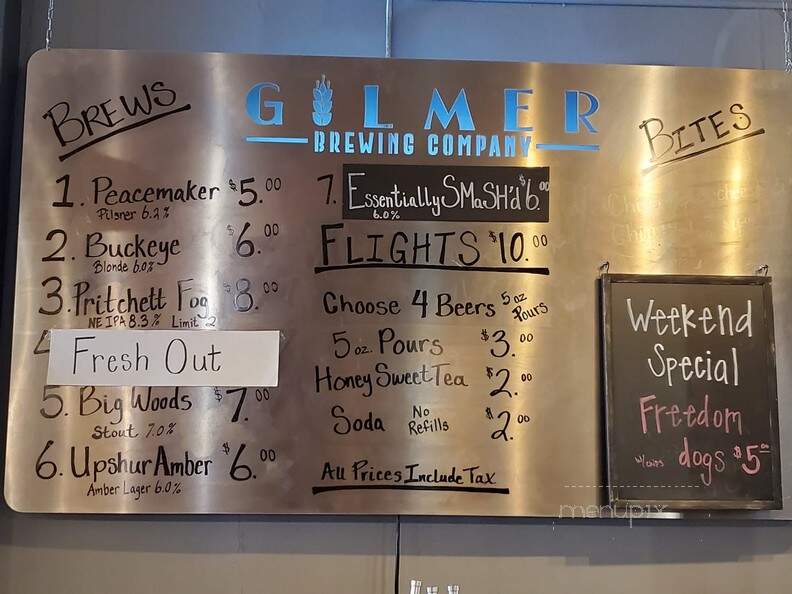 BREWS
GILMER
BREWING COMPANY
BITES
1. Peacemaker $5.00
Pilsner 6.2%
2. Buckeye $6.00
Blonde 6.0%
3. Pritchett Fog $8.00
NE IPA 8.3% Limit 2
4
Fresh Out
5. Big Woods $7.00
Stout 7.0%
6. Upshur Amber $6.00
Amber Lager 6.0%
7. Essentially SMaSH'd $6.00
6.0%
FLIGHTS $10.00
Choose 4 Beers 5oz Pours
5oz. Pours $3.00
Honey Sweet Tea $2.00
Soda No Refills $2.00
All Prices Include Tax
Weekend
Special
Freedom
dogs $5.00
menupix